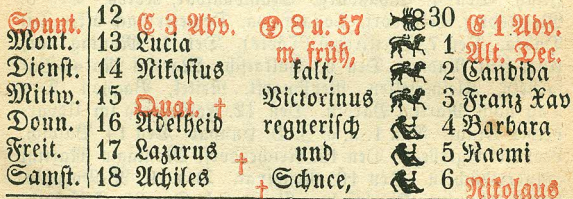 Sonnt. 12 C 3 Adv. 8 u. 57 30 E 1 Adv.
Mont. 13 Lucia m. früh, 1 Alt. Dec.
Dienst. 14 Nikasius kalt, 2 Candida
Mittw. 15 Quat. † Victorinus 3 Franz Xav
Donn. 16 Adelheid regnerisch 4 Barbara
Freit. 17 Lazarus † und 5 Naemi
Samst. 18 Achiles † Schnee, 6 Nikolaus